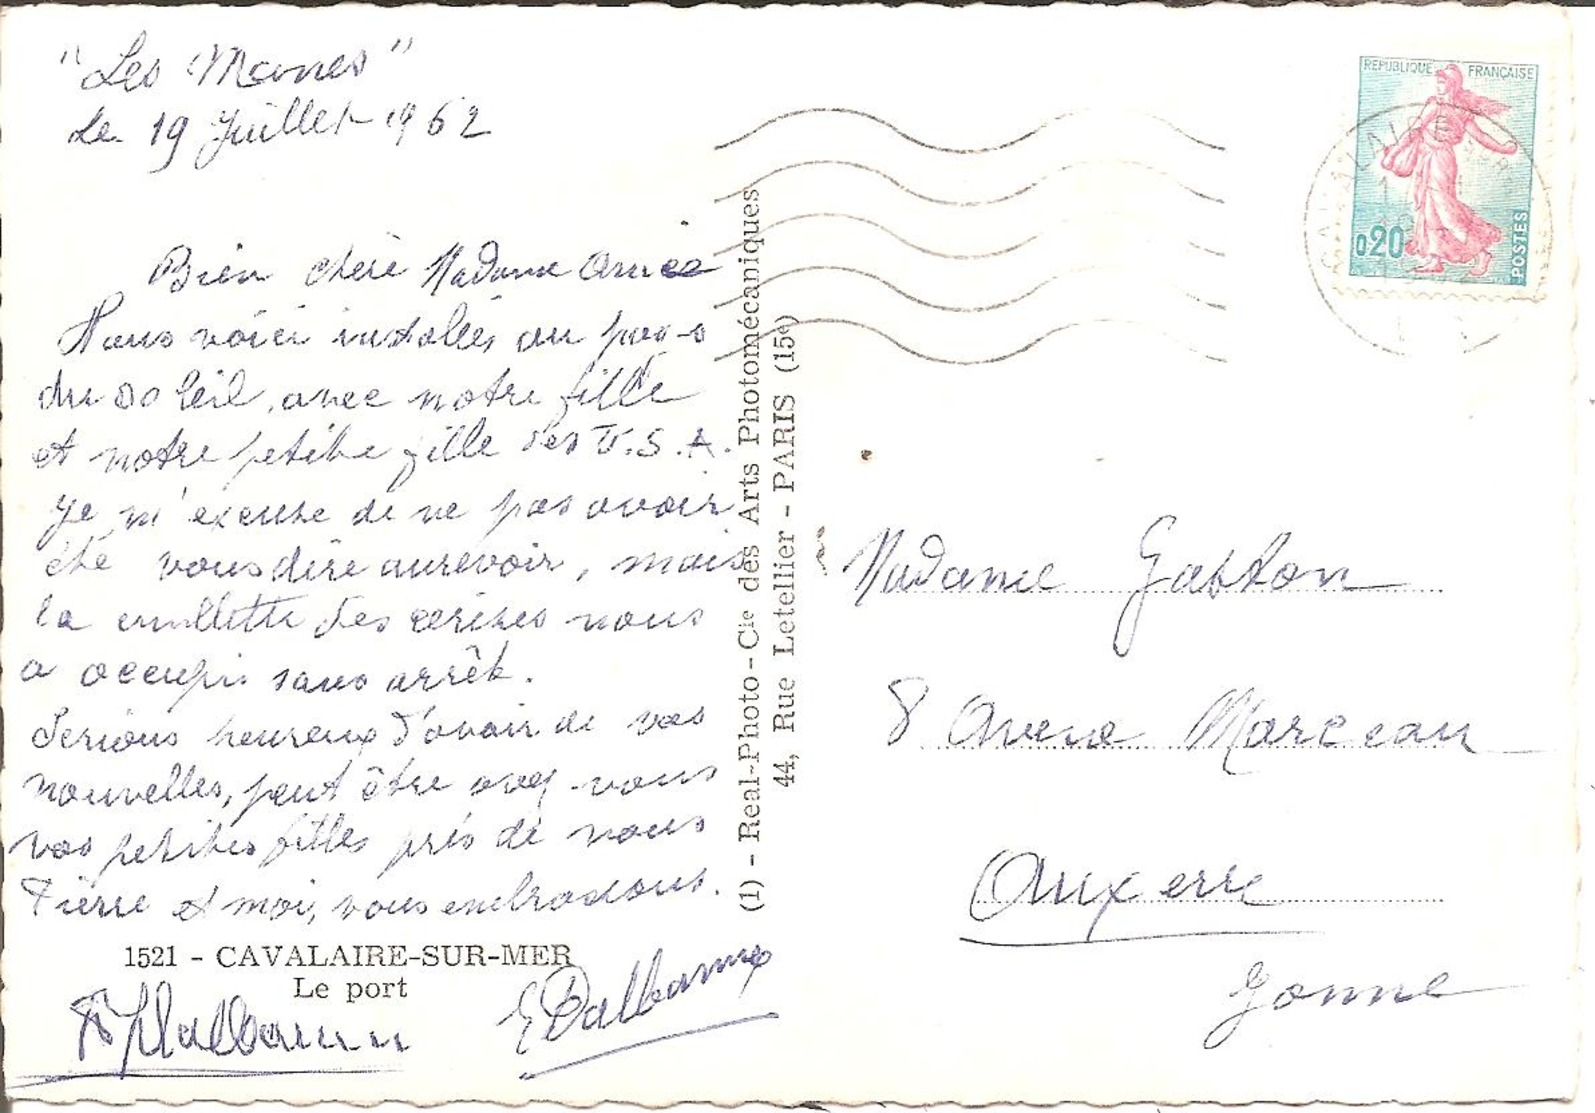 "Les Manes"
Le 19 Juillet 1962
Bien chère Madame
Nous voici installés au pays
du soleil, avec notre fille
et notre petite fille des U.S.A.
Je m'excuse de ne pas avoir
été vous dire aurevoir, mais
la cuillette des cerises nous
a occupés sans arrêt.
Serions heureux d'avoir de vos
nouvelles, peut être avez-vous
vos petites filles près de vous
Pierre et moi, vous embrassons.
1521 - CAVALAIRE-SUR-MER
Le port
(1) - Real-Photo - Cie des Arts Photomécaniques
44, Rue Letellier - PARIS (15e)
REPUBLIQUE FRANÇAISE
0,20
POSTES
CAVALAIRE
Madame Gaston
8 Avenue Marceau
Auxerre
Yonne